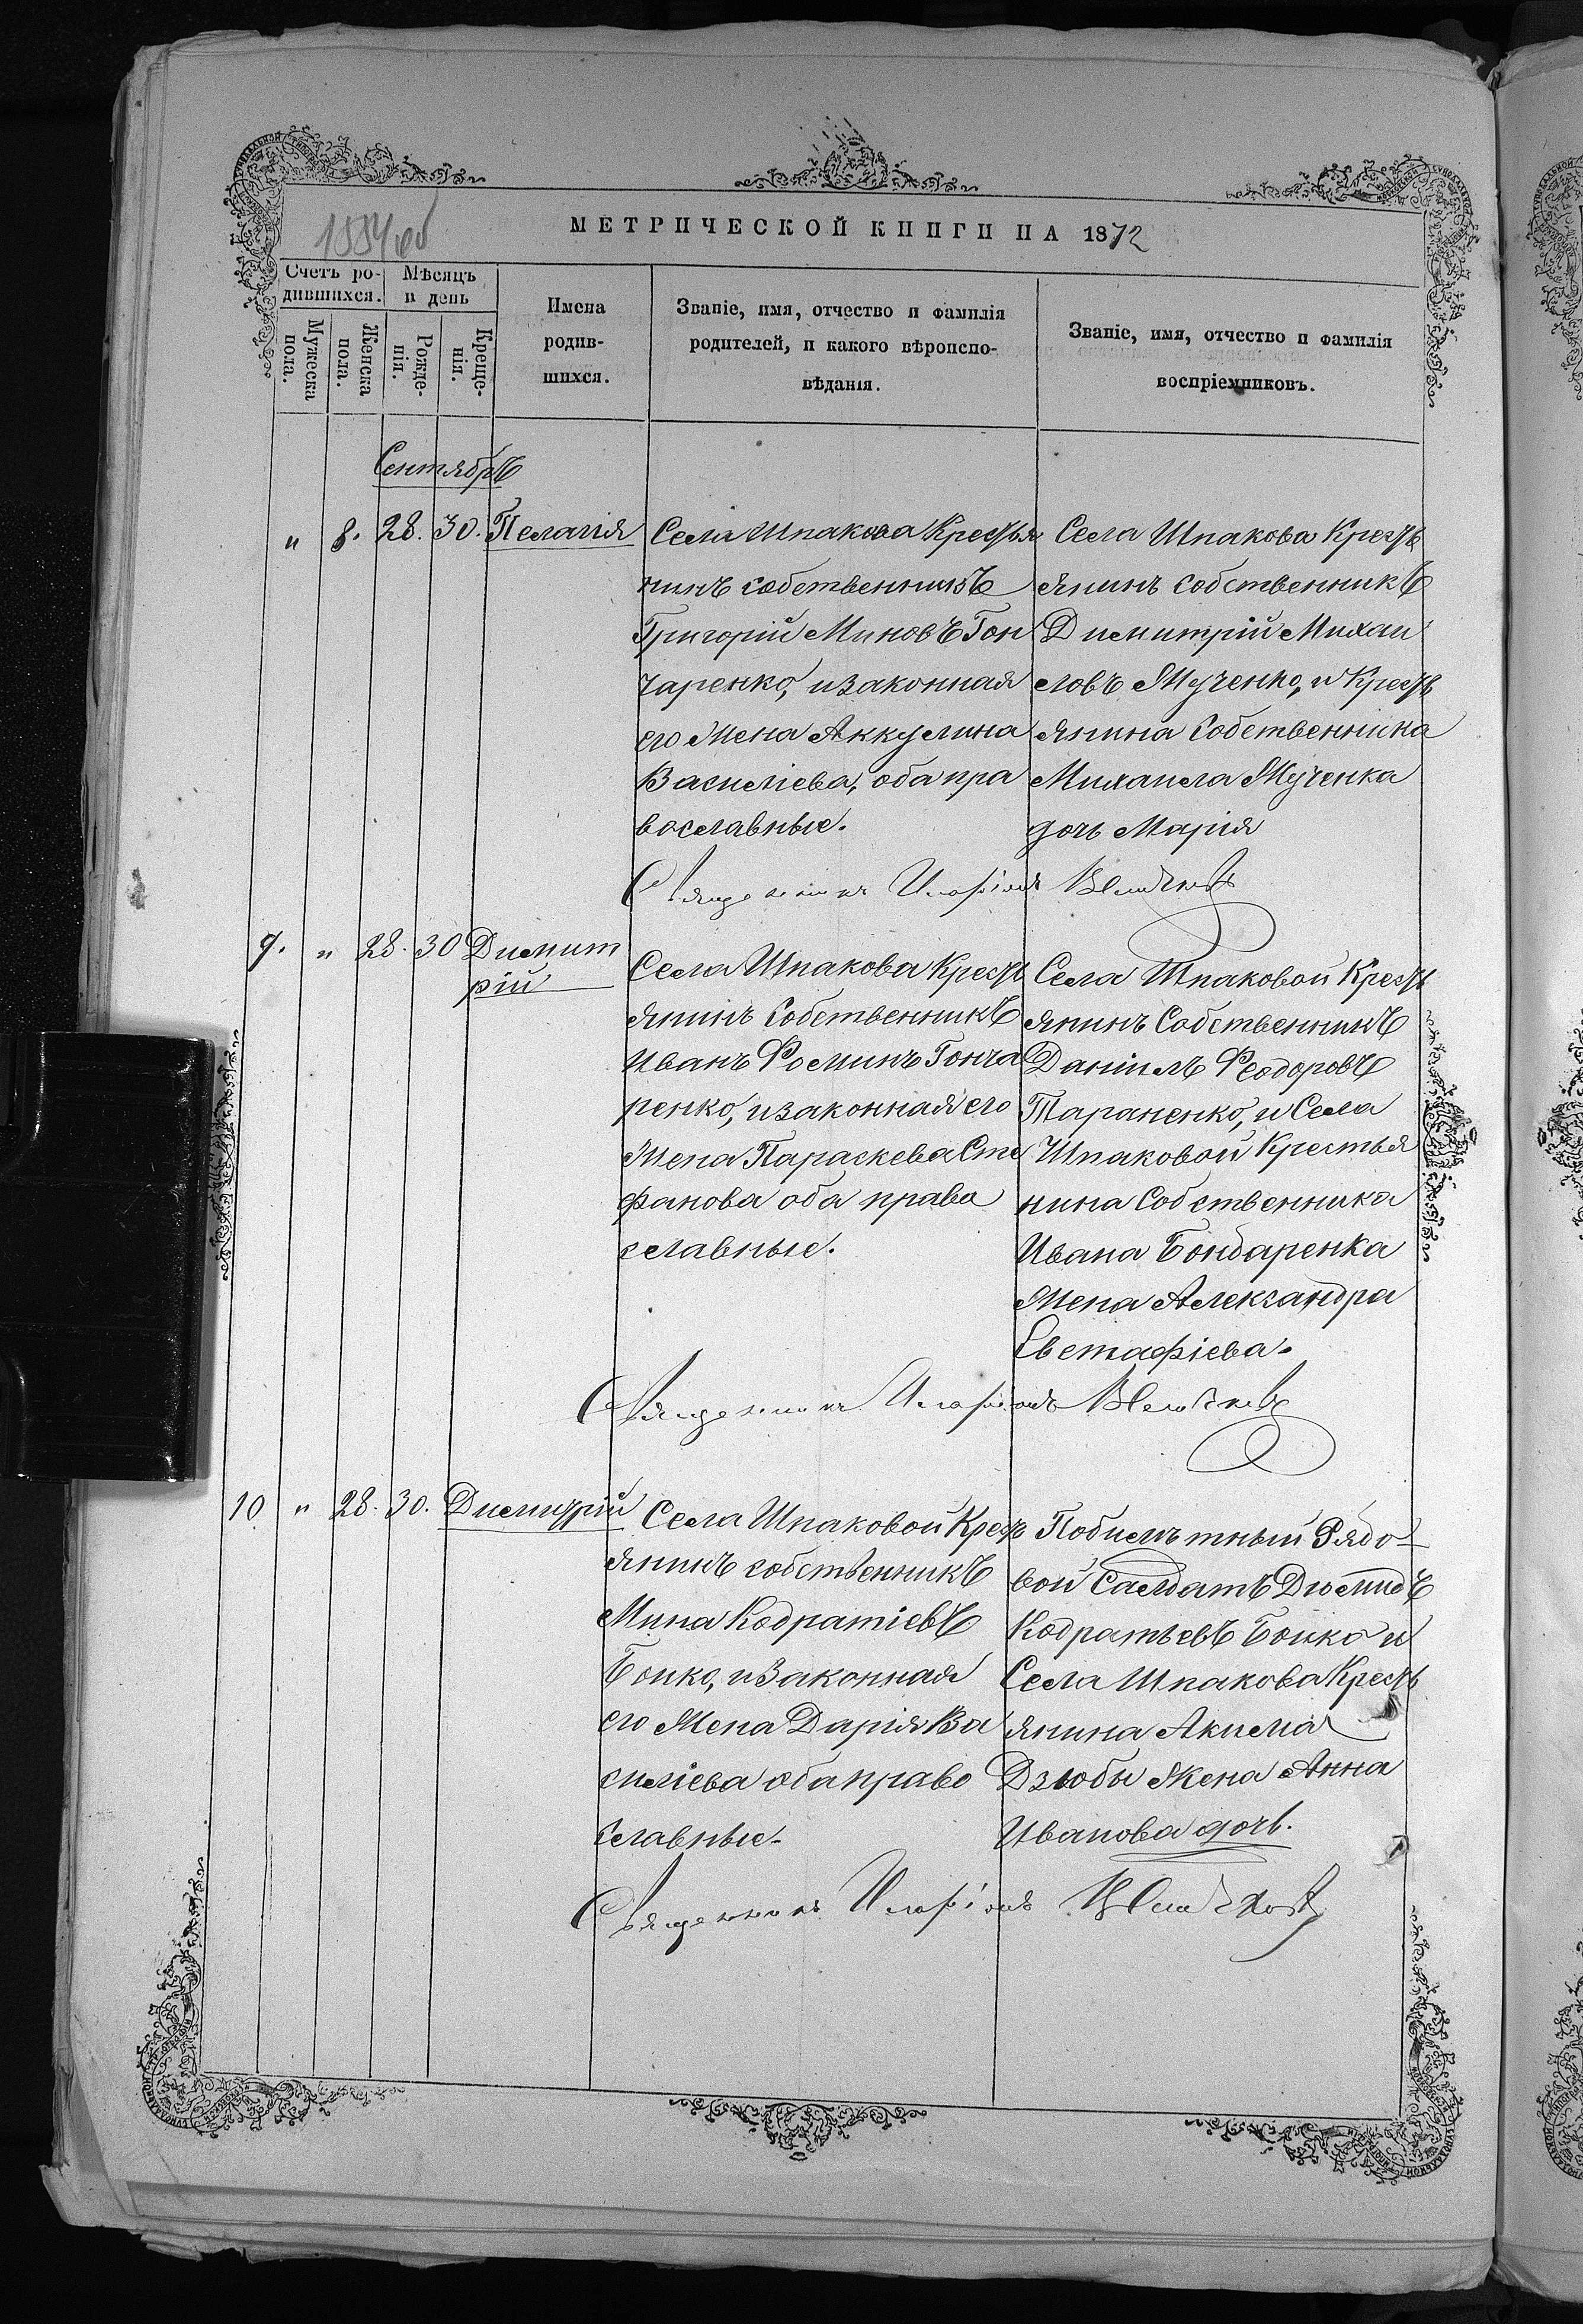 1884 об
МЕТРИЧЕСКОЙ КНИГИ НА 1872
Счетъ ро-
дившихся.
Мѣсяцъ
и день
Мужеска
пола.
Женска
пола.
Рожде-
нія.
Креще-
нія.
Имена
родив-
шихся.
Званіе, имя, отчество и фамилія
родителей, и какого вѣроиспо-
вѣданія.
Званіе, имя, отчество и фамилія
воспріемниковъ.
Сентябрь
" 8. 28. 30. Пелагія
Села Шпакова Крестья
нинъ собственникъ
Григорій Миновъ Гон
чаренко, и законная
его жена Аккулина
Василіева, оба пра
вославные.
Села Шпакова Кресть
янинъ собственникъ
Димитрій Михаи
ловъ Жученко, и Кресть
янина Собственника
Михаила Жученка
дочь Марія
Священникъ Иларіонъ
9. " 28. 30 Димит
рій
Села Шпакова Кресть
янинъ Собственникъ
Иванъ Фоминъ Гонча
ренко, и законная его
жена Параскева Сте
фанова оба право
славные.
Села Шпаковой Кресть
янинъ Собственникъ
Даніилъ Феодоровъ
Тараненко, и Села
Шпаковой Крестья
нина Собственника
Ивана Бондаренка
жена Александра
Евстафіева.
Священникъ Иларіонъ
10 " 28. 30. Димитрій
Села Шпаковой Кресть
янинъ собственникъ
Мина Кодратіевъ
Бойко, и Законная
его жена Дарія Ва
силіева оба право
славные.
Побилѣтный Рядо-
вой Салдатъ Діомидъ
Кодратьевъ Бойко и
Села Шпакова Кресть
янина Акима
Дзюбы жена Анна
Иванова дочь.
Священникъ Иларіонъ